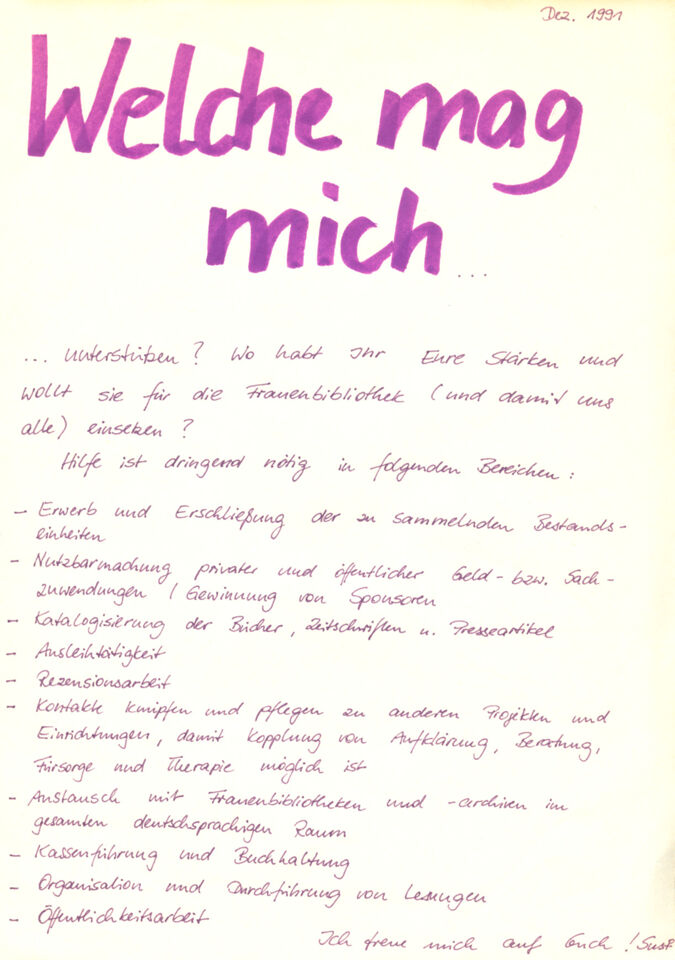 Dez. 1991
Welche mag
mich ...
... unterstützen? Wo habt Ihr Eure Stärken und
wollt sie für die Frauenbibliothek (und damit uns
alle) einsetzen?
Hilfe ist dringend nötig in folgenden Bereichen:
- Erwerb und Erschließung der zu sammelnden Bestands-
einheiten
- Nutzbarmachung privater und öffentlicher Geld- bzw. Sach-
zuwendungen / Gewinnung von Sponsoren
- Katalogisierung der Bücher, Zeitschriften u. Presseartikel
- Ausleihtätigkeit
- Rezensionsarbeit
- Kontakte knüpfen und pflegen zu anderen Projekten und
Einrichtungen, damit Kopplung von Aufklärung, Beratung,
Fürsorge und Therapie möglich ist
- Austausch mit Frauenbibliotheken und -archiven im
gesamten deutschsprachigen Raum
- Kassenführung und Buchhaltung
- Organisation und Durchführung von Lesungen
- Öffentlichkeitsarbeit
Ich freue mich auf Euch!